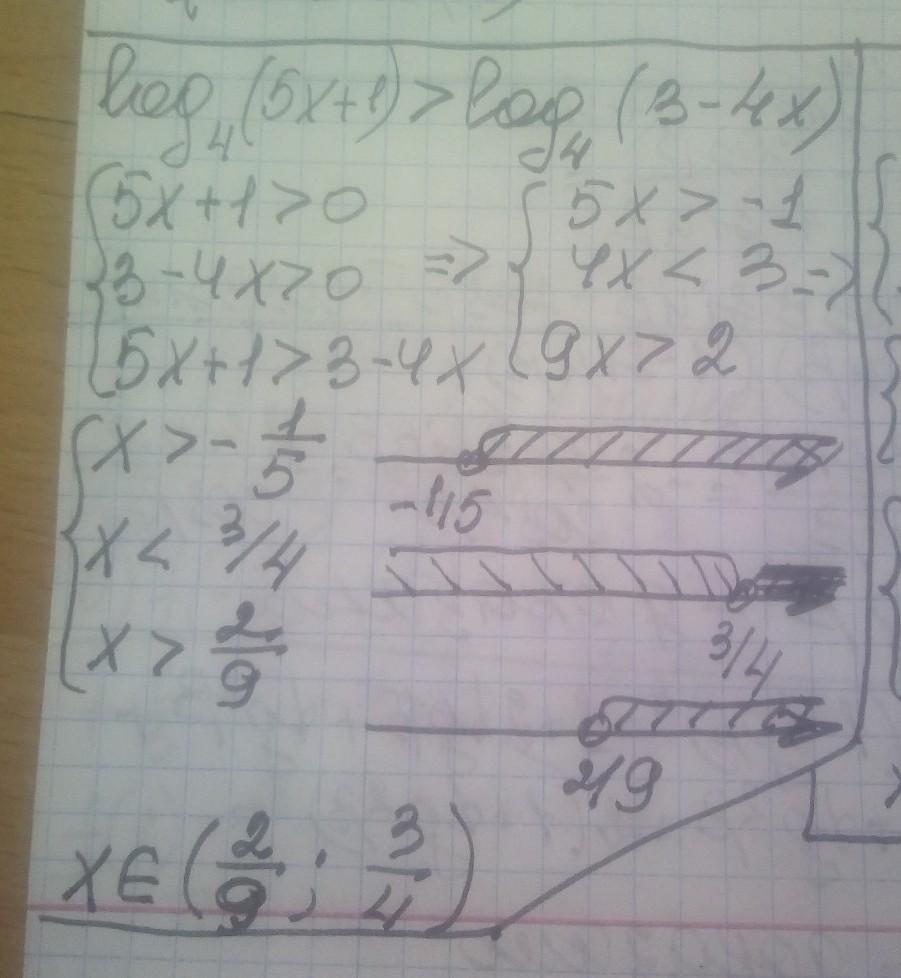 log₄(5x+1) > log₄(3-4x)
{5x+1>0
3-4x>0
5x+1>3-4x
=>
{5x > -1
4x < 3
9x > 2
=>
{x > -1/5
x < 3/4
x > 2/9
-1/5
3/4
2/9
x∈(2/9; 3/4)